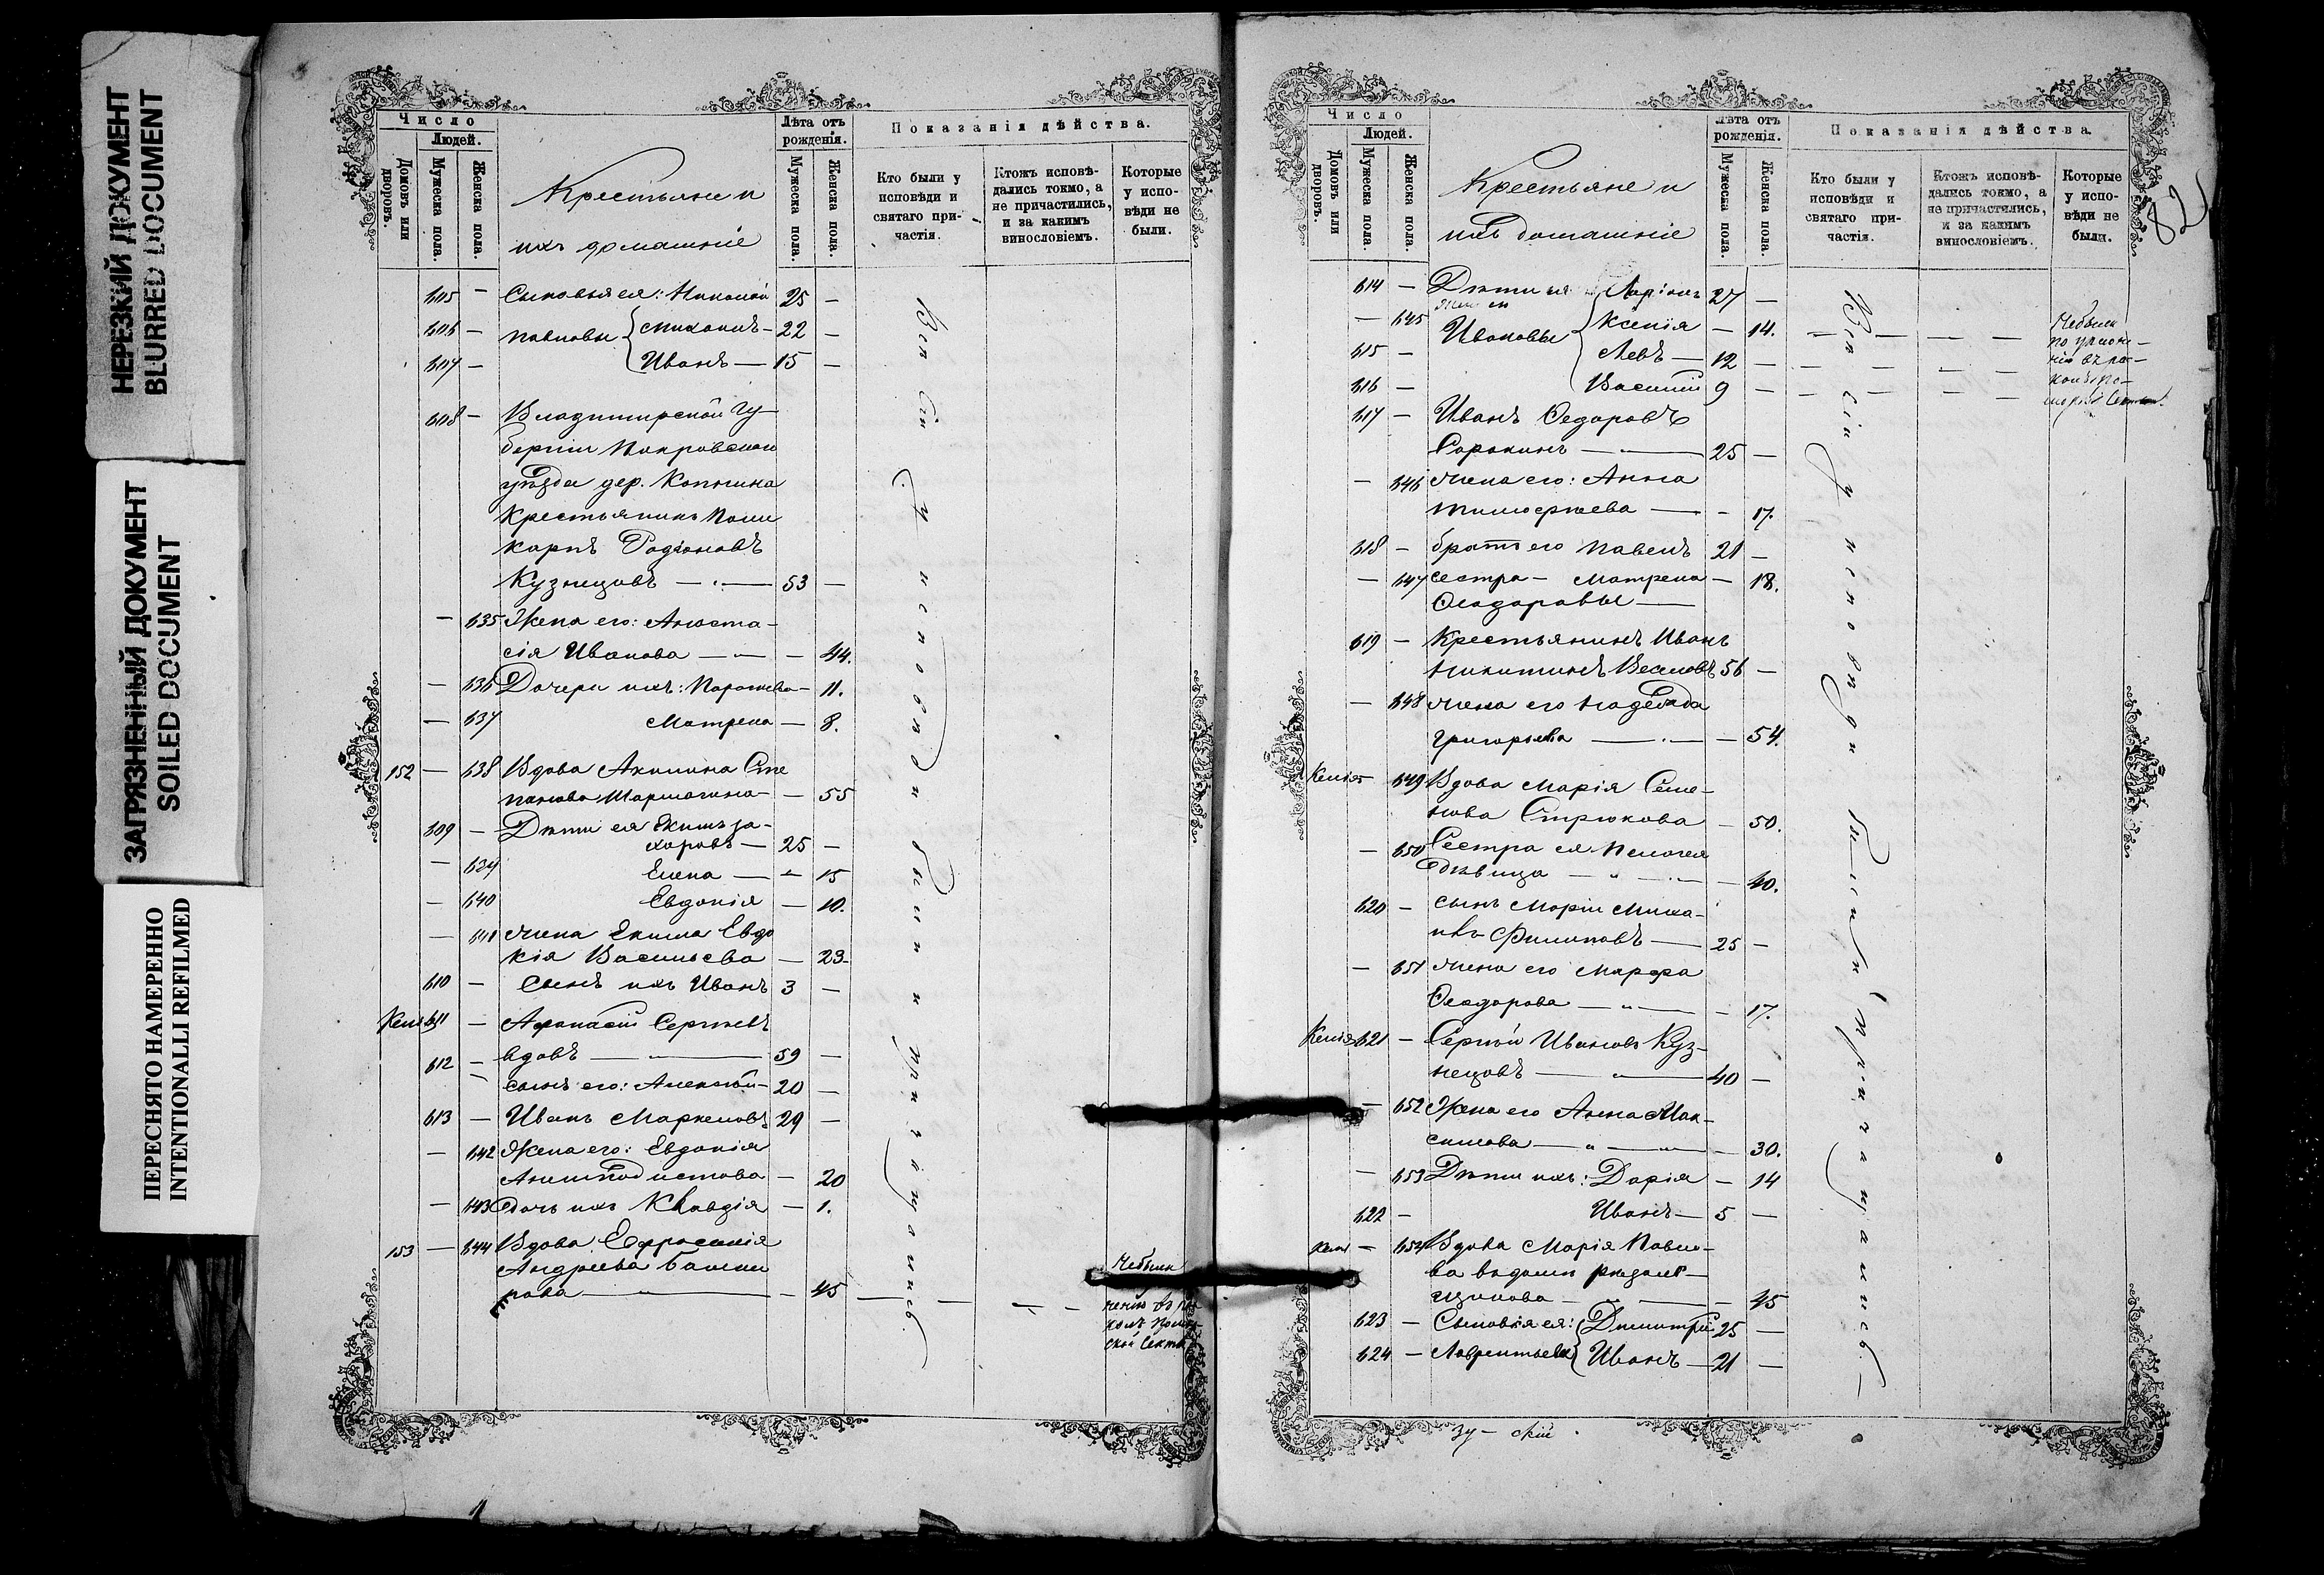 НЕРЕЗКИЙ ДОКУМЕНТ
BLURRED DOCUMENT
ЗАГРЯЗНЕННЫЙ ДОКУМЕНТ
SOILED DOCUMENT
ПЕРЕСНЯТО НАМЕРЕННО
INTENTIONALLI REFILMED
Число
Людей.
Домовъ или дворовъ.
Мужеска пола.
Женска пола.
Крестьяне и
ихъ домашніе
Лѣта отъ рожденія.
Мужеска пола.
Женска пола.
Показанія дѣйства.
Кто были у исповѣди и святаго причастія.
Ктожъ исповѣдались токмо, а не причастились, и за какимъ винословіемъ.
Которые у исповѣди не были.
605 — Сыновья ея: Николай 25 —
606 — Павловы Михаилъ — 22 —
607 — Иванъ — 15 —
608 — Владимирской Гу-
берніи Покровскаго
уѣзда дер. Копнина
Крестьянинъ Поли
карпъ Родіоновъ
Кузнецовъ — 53 —
— 635 Жена его: Анаста-
сія Иванова — — 44.
— 636 Дочери ихъ: Парасковья — 11.
— 637 Матрена — 8.
152 — 638 Вдова Акилина Сте
панова — 55
609 — Дѣти ея Екимъ За-
харовъ — 25 —
— 639 Елена — — 15
— 640 Евдокія — 10.
— 641 Жена Екима Евдо
кія Васильева — 23
610 — Сынъ ихъ Иванъ 3 —
Келія 611 — Афанасій Сергѣевъ
вдовъ — 59 —
612 — сынъ его: Алексѣй — 20 —
613 — Иванъ Маркеловъ 29 —
— 642 Жена его: Евдокія
— 20
— 643 Дочь ихъ Клавдія — 1.
153 — 644 Вдова Ефросинія
Андреева
— 45 — — — —
Небыли
Всѣ сіи у исповѣди были и причащались
82
Число
Людей.
Домовъ или дворовъ.
Мужеска пола.
Женска пола.
Крестьяне и
ихъ домашніе
Лѣта отъ рожденія.
Мужеска пола.
Женска пола.
Показанія дѣйства.
Кто были у исповѣди и святаго причастія.
Ктожъ исповѣдались токмо, а не причастились, и за какимъ винословіемъ.
Которые у исповѣди не были.
614 — Дѣти ея Ларіонъ 27 —
— 645 Ивановы Ксенія — 14.
615 — Левъ — 12 —
616 — Василій 9 —
Небыли
по уклоне-
нію въ ра-
617 — Иванъ Федоровъ
Сорокинъ — 25 —
— 646 Жена его: Анна
Тимоѳеева — — 17.
618 — братъ его Павелъ 21 —
— 647 сестра — Матрена — 18.
Ѳеодоровы —
619 — Крестьянинъ Иванъ
Никитинъ 56 —
— 648 Жена его Надежда
Григорьева — — 54.
Келія — 649 Вдова Марія Семе-
нова Стрюкова — 50.
— 650 Сестра ея Пелагея
дѣвица — — 40.
620 — сынъ Маріи Миха-
илъ Филиповъ — 25 —
— 651 Жена его Марфа
Ѳеодорова — — 17.
Келія 621 — Сергѣй Ивановъ Куз-
нецовъ — 40 —
— 652 Жена его Анна Мак-
симова — — 30.
— 653 Дѣти ихъ: Дарія — 14
622 — Иванъ — 5 —
— 654 Вдова Марія Павло-
ва — 45
623 — Сыновья ея: Дмитрій 25 —
624 — Лаврентьевы Иванъ — 21 —
Всѣ сіи у исповѣди были и причащались.